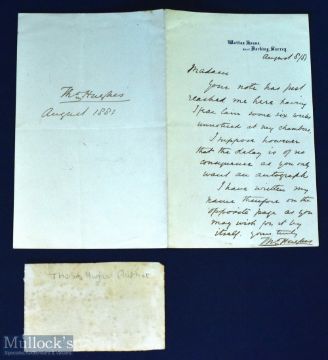 Thos Hughes
August 1881
Wotton House,
near Dorking, Surrey.
August 5/81
Madam
Your note has just
reached me here having
I fear lain some six weeks
unnoticed at my chambers.
I suppose however
that the delay is of no
consequence as you only
want an autograph
I have written my
name therefore on the
opposite page as you
may wish for it by
itself. Yours truly
Thos Hughes
Thomas Hughes Author
Mullock's